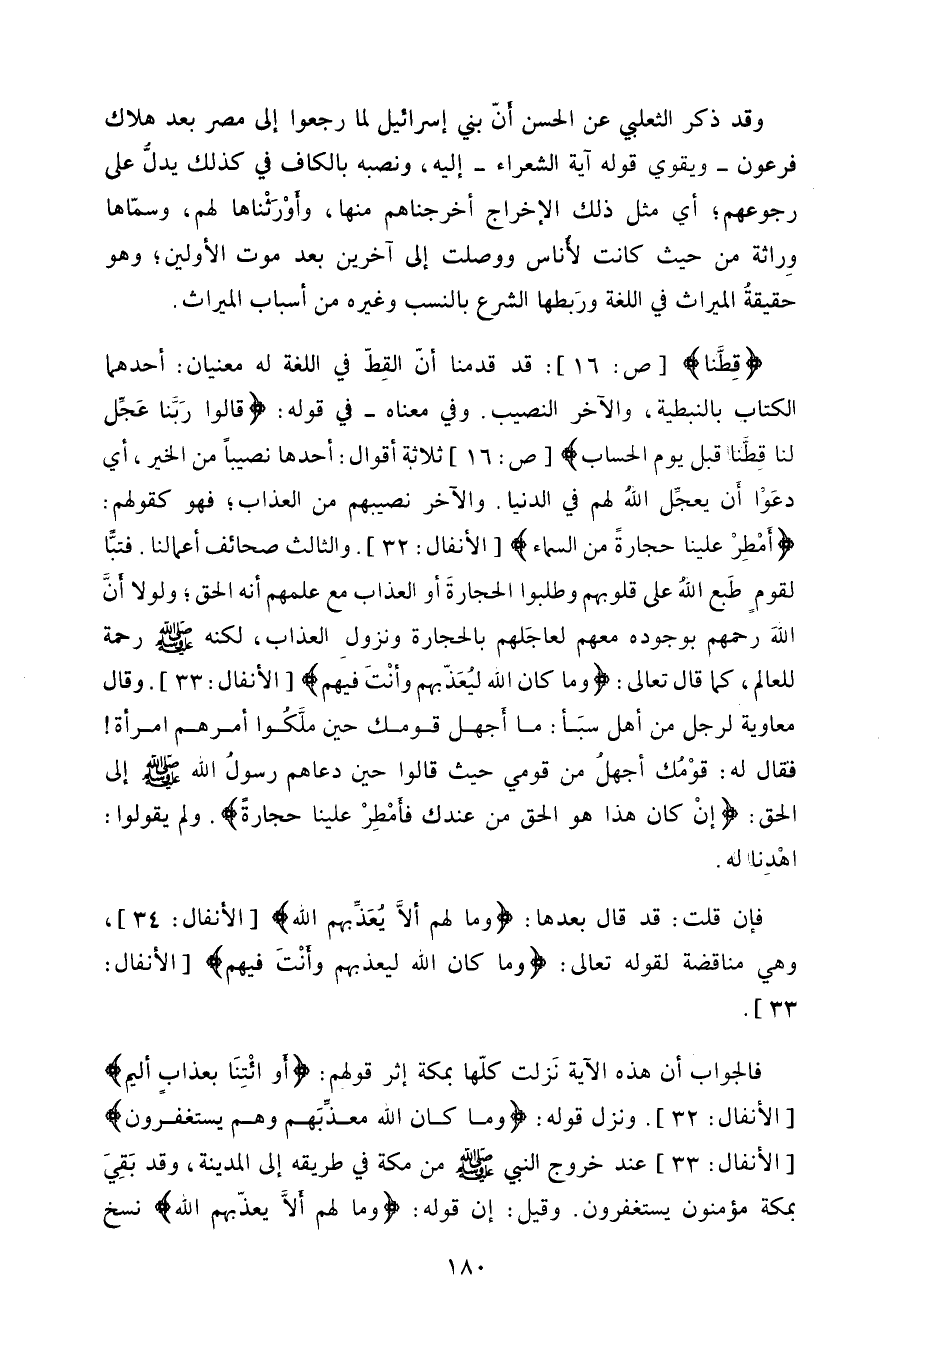 وقد ذكر الثعلبي عن الحسن أنّ بني إسرائيل لما رجعوا إلى مصر بعد هلاك
فرعون ـ ويقوي قوله آية الشعراء ـ إليه، ونصبه بالكاف في كذلك يدلُّ على
رجوعهم؛ أي مثل ذلك الإخراج أخرجناهم منها، وأوْرَثْناها لهم، وسمّاها
وِراثة من حيث كانت لأُناس ووصلت إلى آخرين بعد موت الأولين؛ وهو
حقيقةُ الميراث في اللغة ورَبطها الشرع بالنسب وغيره من أسباب الميراث.
﴿قِطَّنا﴾ [ص: ١٦]: قد قدمنا أنّ القِطّ في اللغة له معنيان: أحدهما
الكتاب بالنبطية، والآخر النصيب. وفي معناه ـ في قوله: ﴿قالوا رَبَّنا عَجِّل
لنا قِطَّنا قبل يوم الحساب﴾ [ص: ١٦] ثلاثة أقوال: أحدها نصيباً من الخير، أي
دعَوْا أن يعجِّل اللهُ لهم في الدنيا. والآخر نصيبهم من العذاب؛ فهو كقولهم:
﴿أَمْطِرْ علينا حجارةً من السماء﴾ [الأنفال: ٣٢]. والثالث صحائف أعمالنا. فتبًّا
لقومٍ طَبع اللهُ على قلوبهم وطلبوا الحجارةَ أو العذاب مع علمهم أنه الحق؛ ولولا أنَّ
اللهَ رحمهم بوجوده معهم لعاجَلهم بالحجارة ونزولِ العذاب، لكنه ﷺ رحمة
للعالم، كما قال تعالى: ﴿وما كان الله ليُعَذّبهم وأنْتَ فيهم﴾ [الأنفال: ٣٣]. وقال
معاوية لرجل من أهل سبَأ: ما أجهل قومك حين ملَّكُوا أمرهم امرأة!
فقال له: قوْمُك أجهلُ من قومي حيث قالوا حين دعاهم رسولُ الله ﷺ إلى
الحق: ﴿إنْ كان هذا هو الحق من عندك فأَمْطِرْ علينا حجارةً﴾. ولم يقولوا:
اهْدِنا له.
فإن قلت: قد قال بعدها: ﴿وما لهم ألاَّ يُعَذِّبهم الله﴾ [الأنفال: ٣٤]،
وهي مناقضة لقوله تعالى: ﴿وما كان الله ليعذبهم وأَنْتَ فيهم﴾ [الأنفال:
٣٣].
فالجواب أن هذه الآية نَزلت كلّها بمكة إثر قولهم: ﴿أو ائْتِنَا بعذابٍ أليم﴾
[الأنفال: ٣٢]. ونزل قوله: ﴿وما كان الله معذِّبَهم وهم يستغفرون﴾
[الأنفال: ٣٣] عند خروج النبي ﷺ من مكة في طريقه إلى المدينة، وقد بَقِيَ
بمكة مؤمنون يستغفرون. وقيل: إن قوله: ﴿وما لهم أَلاَّ يعذّبهم الله﴾ نسخ
١٨٠